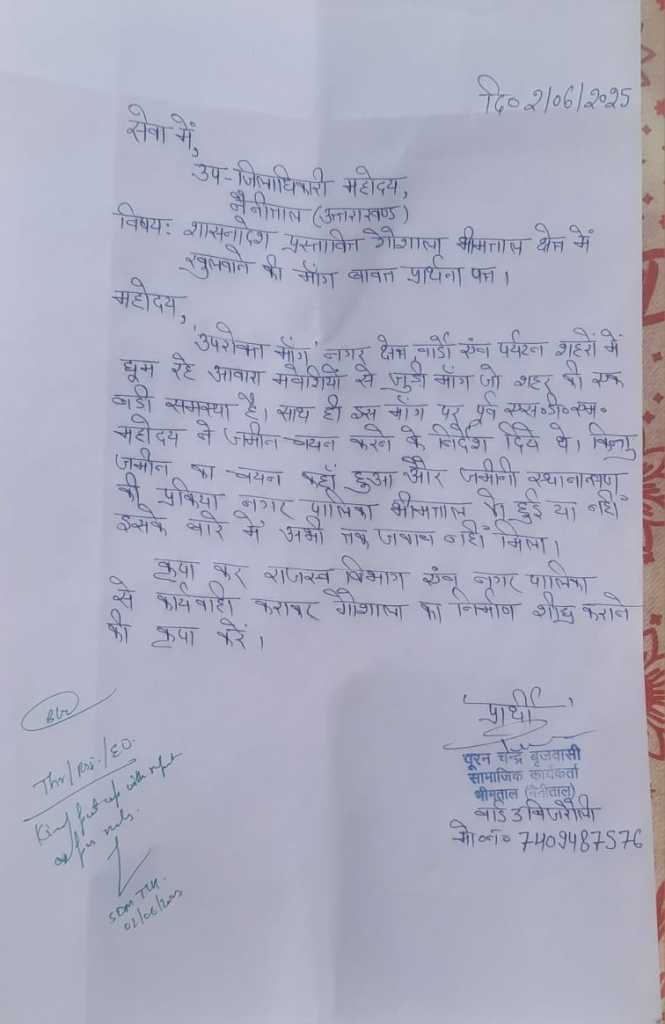 दि० 2/06/2025
सेवा में,
उप-जिलाधिकारी महोदय,
नैनीताल (उत्तराखण्ड)
विषय: शासनादेश प्रस्तावित गौशाला भीमताल क्षेत्र में
खुलवाने की माँग बावत प्रार्थना पत्र।
महोदय,
'उपरोक्त माँग' नगर क्षेत्र, वार्डो एंव पर्यटन शहरों में
घूम रहे आवारा मवेशियों से जुड़ी माँग जो शहर की एक
बडी समस्या है। साथ ही इस माँग पर पूर्व एस०डी०एम०
महोदय ने जमीन चयन करने के निर्देश दिये थे। किन्तु
जमीन का चयन कहाँ हुआ और जमीनी स्थानान्तरण
की प्रकिया नगर पालिका भीमताल को हुई या नहीं
इसके बारे में अभी तक जवाब नहीं मिला।
कृपा कर राजस्व विभाग एंव नगर पालिका
से कार्यवाही कराकर गौशाला का निर्माण शीघ्र कराने
की कृपा करें।
प्रार्थी
पूरन चन्द्र बृजवासी
सामाजिक कार्यकर्ता
भीमताल (नैनीताल)
वार्ड 3 बिजरौली
मो०नं० 7409487576
Thr/ /EO.
put up with report
as per rules.
SDM
02/06/